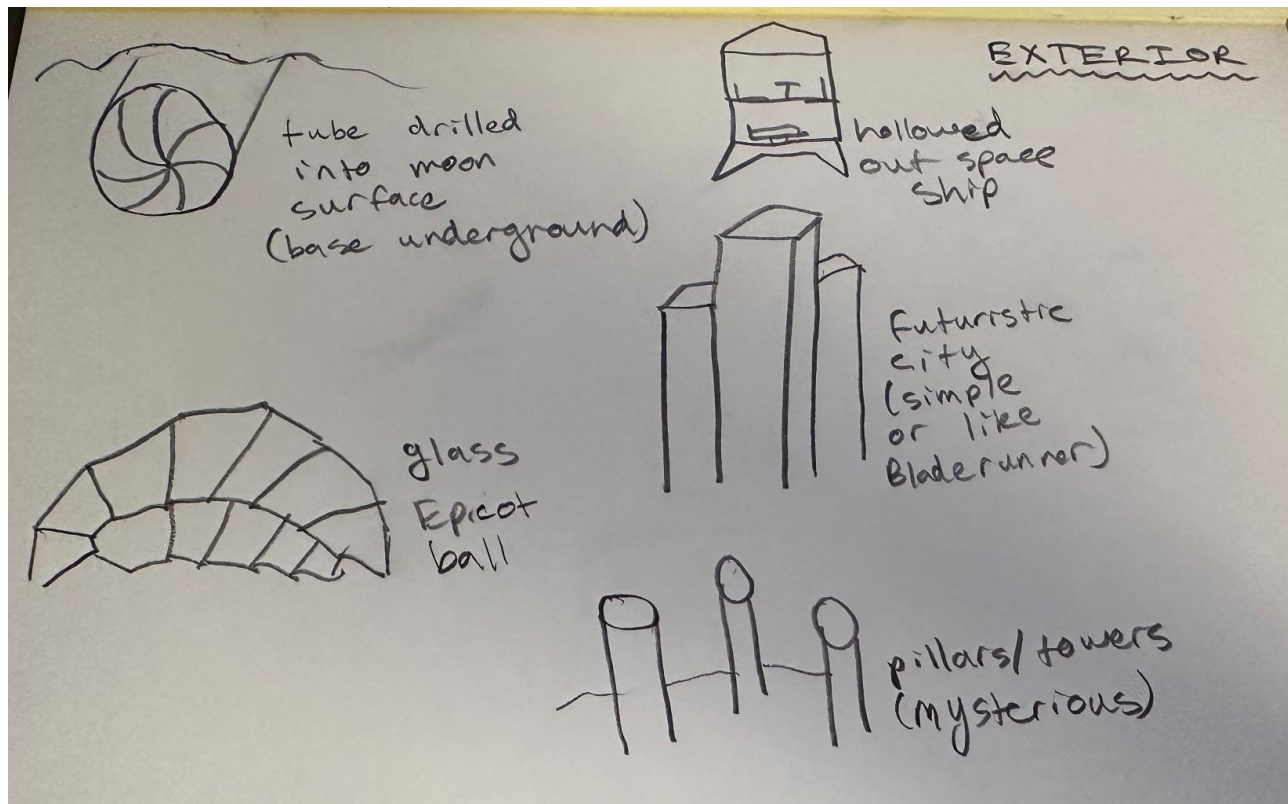 EXTERIOR
tube drilled
into moon
surface
(base underground)
hollowed
out space
ship
Futuristic
city
(simple
or like
Bladerunner)
glass
Epicot
ball
pillars/towers
(mysterious)